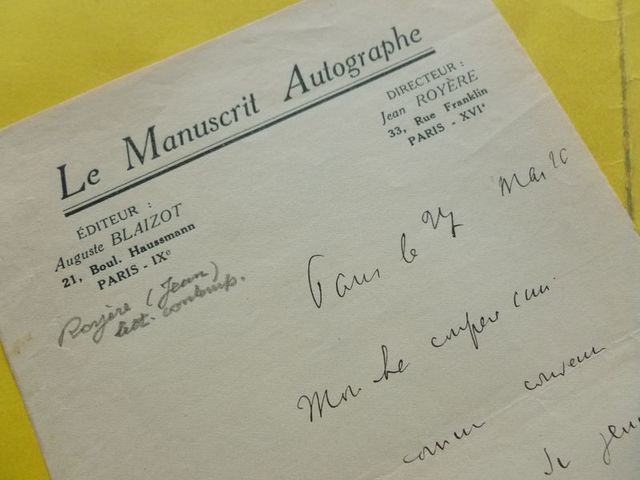 Le Manuscrit Autographe
ÉDITEUR :
Auguste BLAIZOT
21, Boul. Haussmann
PARIS - IXe
DIRECTEUR :
Jean ROYÈRE
33, Rue Franklin
PARIS - XVIe
Royère (Jean)
litt. contemp.
Paris le 27 Mai 26
Mon
comme convenu
Je